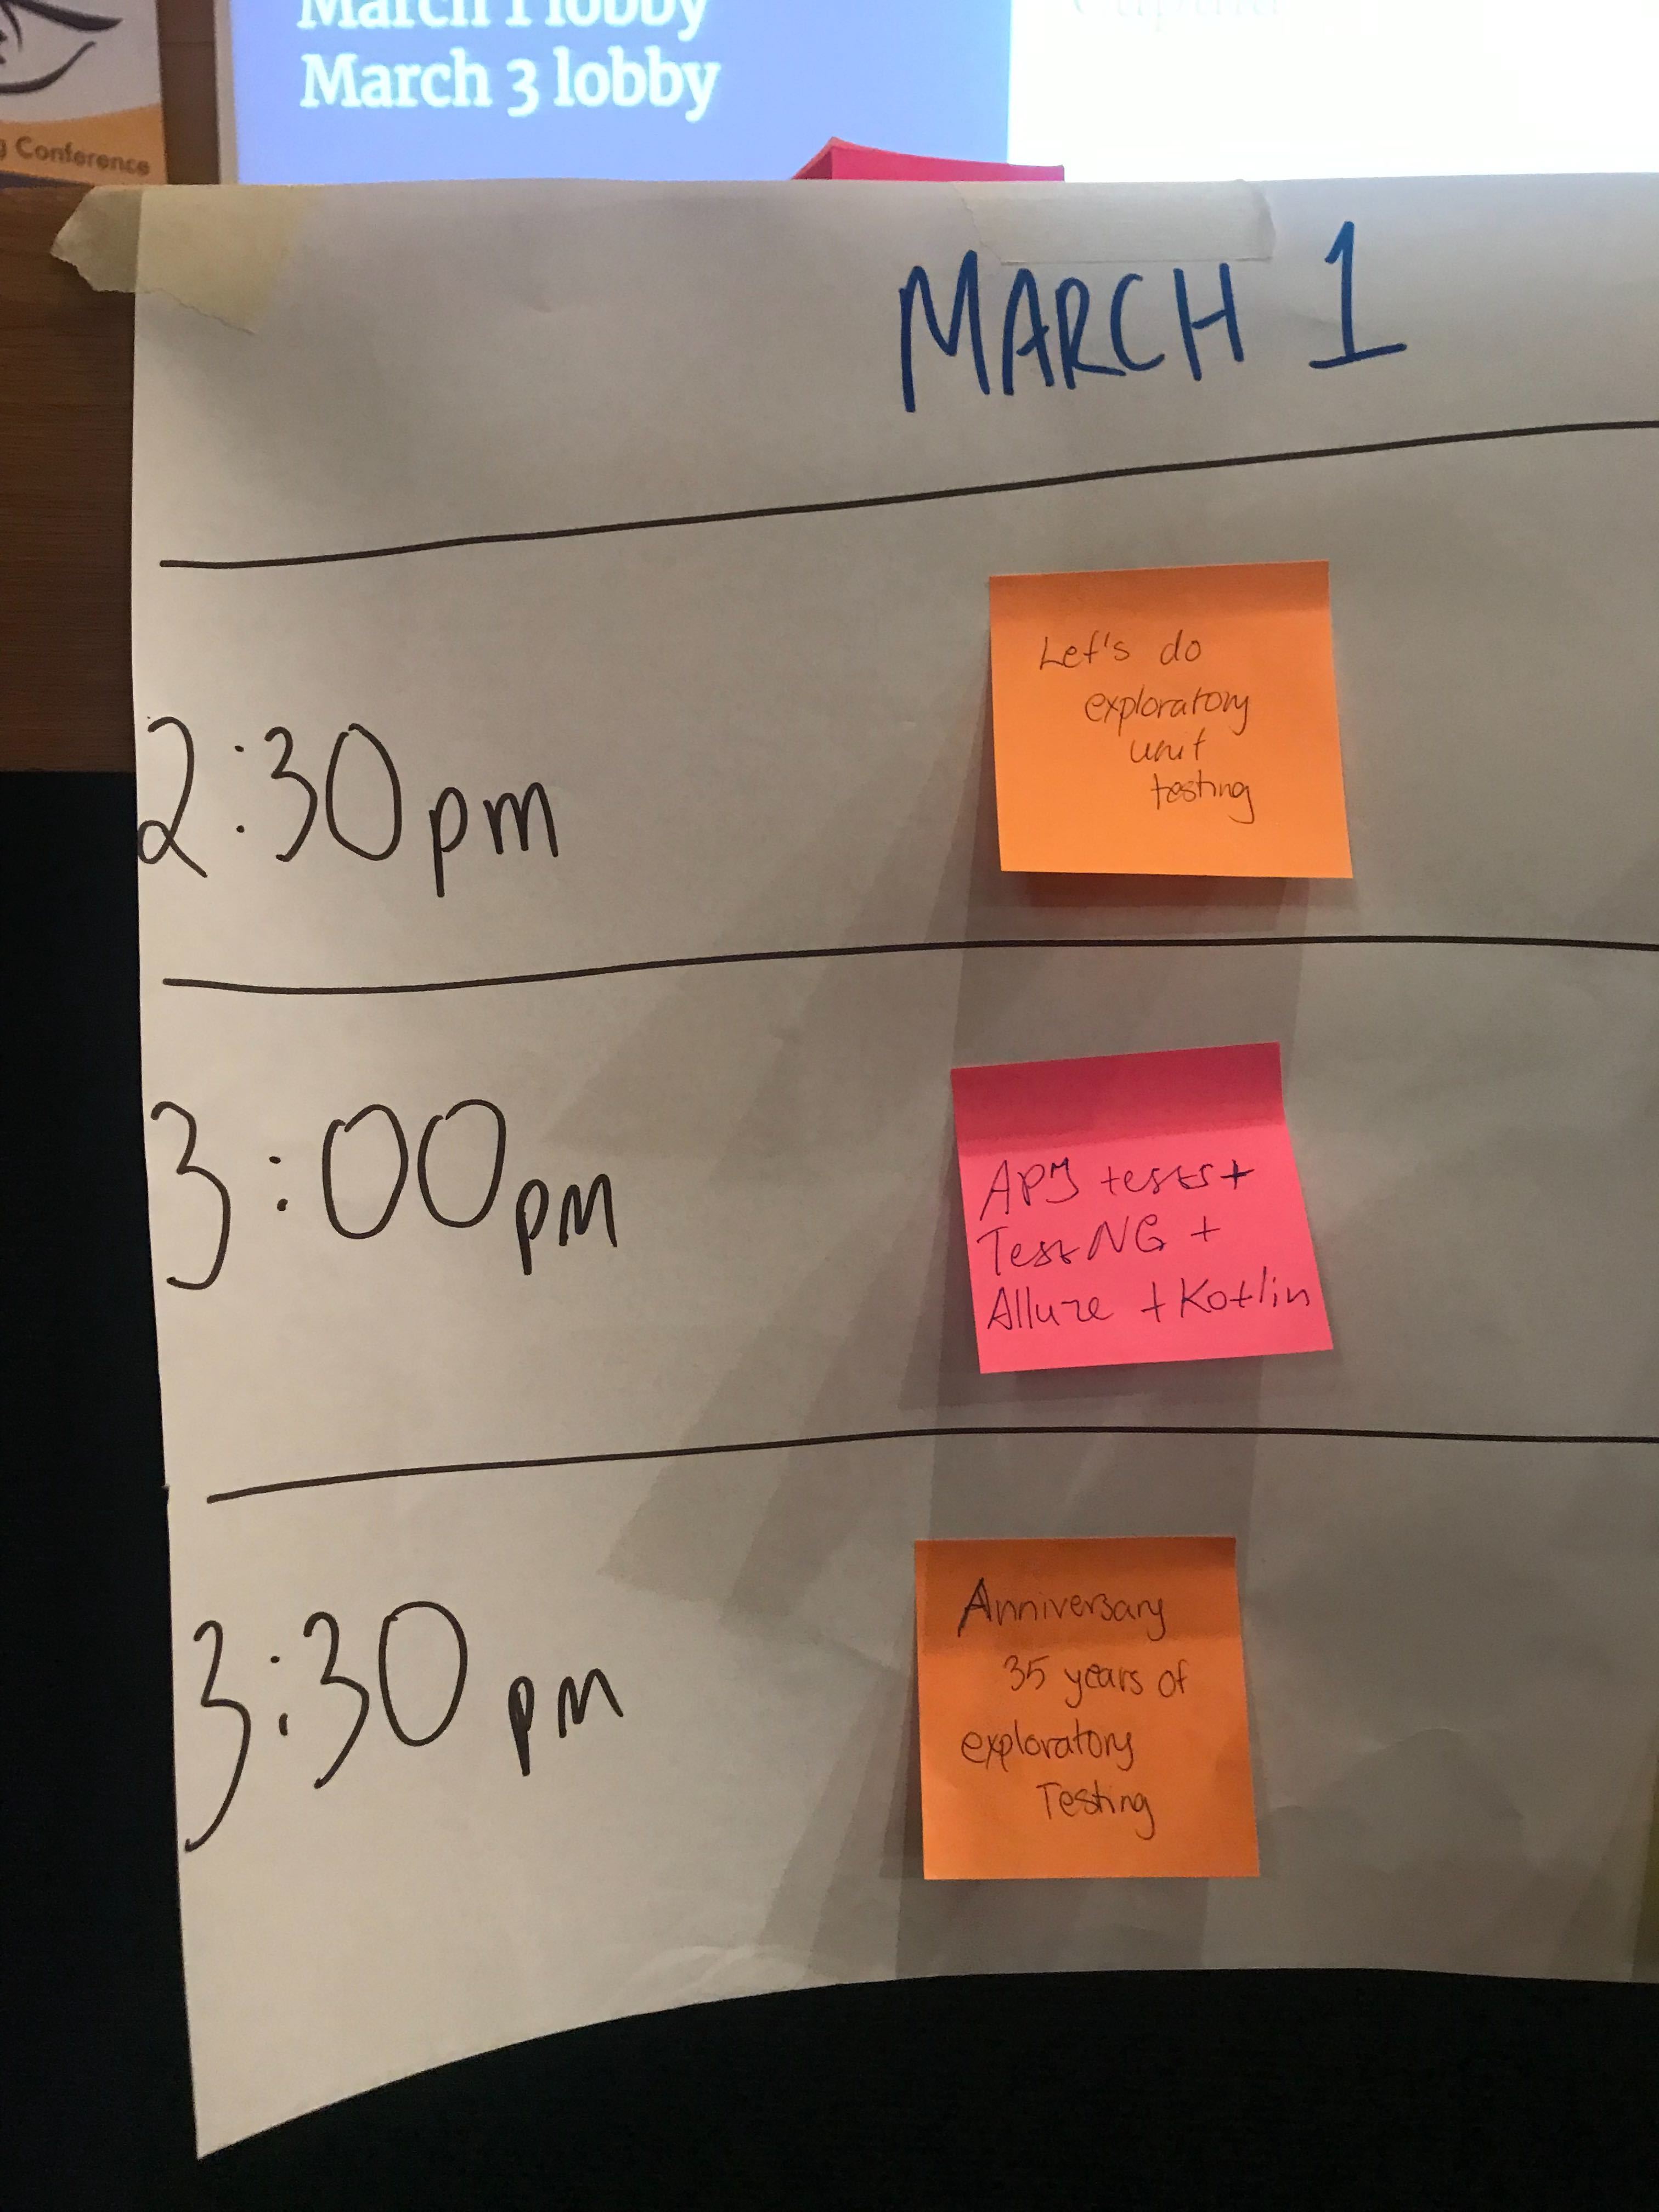 March 1 lobby
March 3 lobby
Conference
MARCH 1
2:30pm
Let's do
exploratory
unit
testing
3:00pm
API tests+
TestNG +
Allure + Kotlin
3:30pm
Anniversary
35 years of
exploratory
Testing